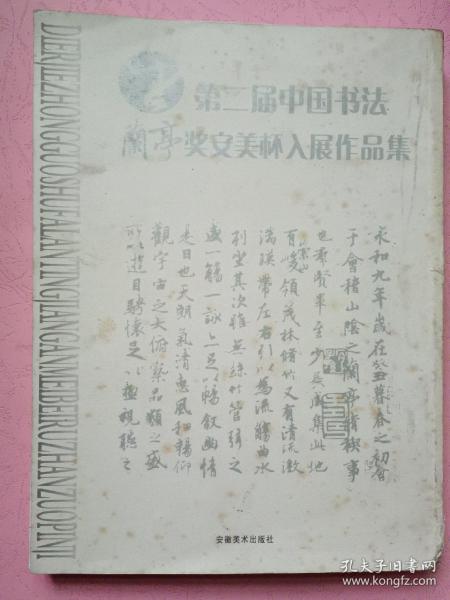 第二届中国书法
蘭亭奖安美杯入展作品集
DIERJIEZHONGGUOSHUFALANTINGJIANGANMEIBEIRUZHANZUOPINJI
永和九年歲在癸丑暮春之初會
于會稽山陰之蘭亭脩稧事
也羣賢畢至少長咸集此地
有崇山峻領茂林脩竹又有清流激
湍暎帶左右引以為流觴曲水
列坐其次雖無絲竹管弦之
盛一觴一詠亦足以暢敘幽情
是日也天朗氣清惠風和暢仰
觀宇宙之大俯察品類之盛
所以遊目騁懷足以極視聽之
安徽美术出版社
孔夫子旧书网
www.kongfz.com